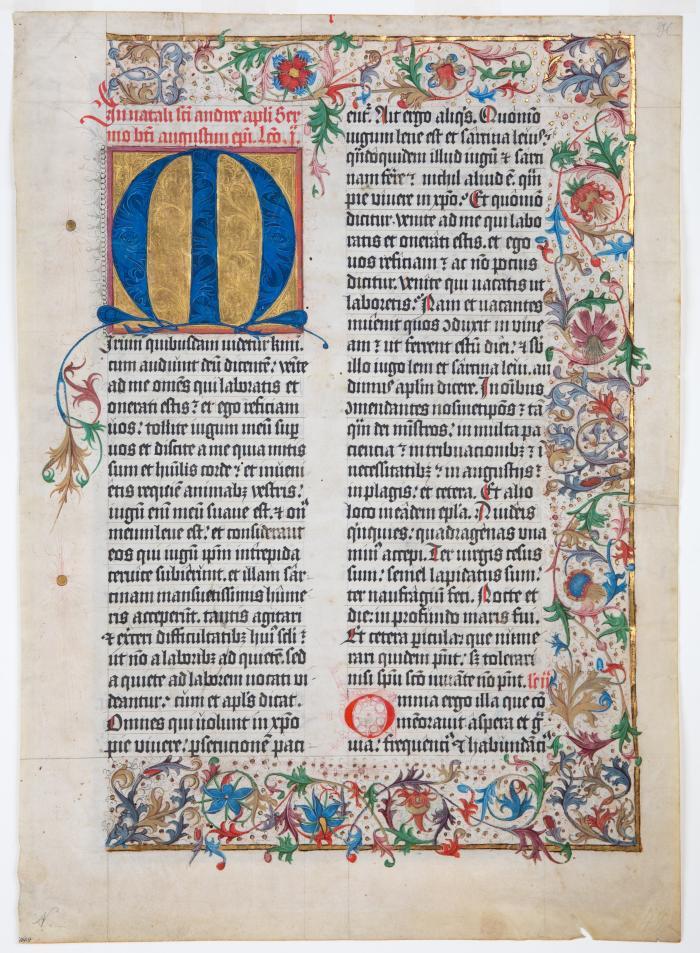 In natali sc̄i andree apl̄i Ser
mo bt̄i augustini ep̄i. Lc̄o .j.
M
Irum quibusdam videtur kmi
cum audiunt dn̄m dicente᷒: venite
ad me omnes qui laboratis et
onerati estis: et ego reficiam
vos: tollite iugum meū sup̄
vos et discite a me quia mitis
sum et hūilis corde: et inueni
etis requiē animabꝫ vestris:
iugū enī meū suaue est. ⁊ on᷒
meum leue est: et considerant
eos qui iugū ip̄m intrepida
ceruice subierūt. et illam sar
cinam mansuetissimis hume
ris acceperūt. tantis agitari
⁊ exerceri difficultatibꝫ hui᷒ sēli:
ut nō a laboribꝫ ad quietē. sed
a quiete ad laborem uocati vi
deantur: cum et apl̄s dicat.
Omnes qui volunt in xp̄o
pie vivere: psecutionē paci
ent᷒. Ait ergo aliqs. Quomō
iugum leue est et sarcina leuis:
qn̄doquidem illud iugū ⁊ sarci
nam ferre ⁊ nichil aliud ē. qm̄
pie viuere in xp̄o: Et quomō
dicitur. venite ad me qui labo
ratis et onerati estis. et ego
vos reficiam ⁊ ac nō potius
dicitur. venite qui vacatis ut
laboretis: Nam et vacantes
inuenit quos ꝯduxit in vine
am ⁊ ut ferrent estū diei: ⁊ sub
illo iugo leni et sarcina leui. au
dimus apl̄m dicere. In oībus
ꝯmendantes nosmetip̄os ⁊ ta
qm̄ dei mīstros: in multa pa
ciencia ⁊ in tribulacionibꝫ ⁊ i
necessitatibꝫ ⁊ in angustijs ⁊
in plagis: et cetera. Et alio
loco in eadem ep̄la. A iudeis
quinquies: quadragenas una
min᷒ accepi. Ter virgis cesus
sum: semel lapidatus sum:
ter naufragiū feci. Nocte et
die: in profundo maris fui.
Et cetera picula: que nūme
rari quidem pn̄t: sꝫ tolerari
nisi sp̄u scō iuuante nō pn̄t. lc̄ ij
Omnia ergo illa que cō
mēorauit aspera et g᷒
uia: frequenti᷒ ⁊ habundāti᷒